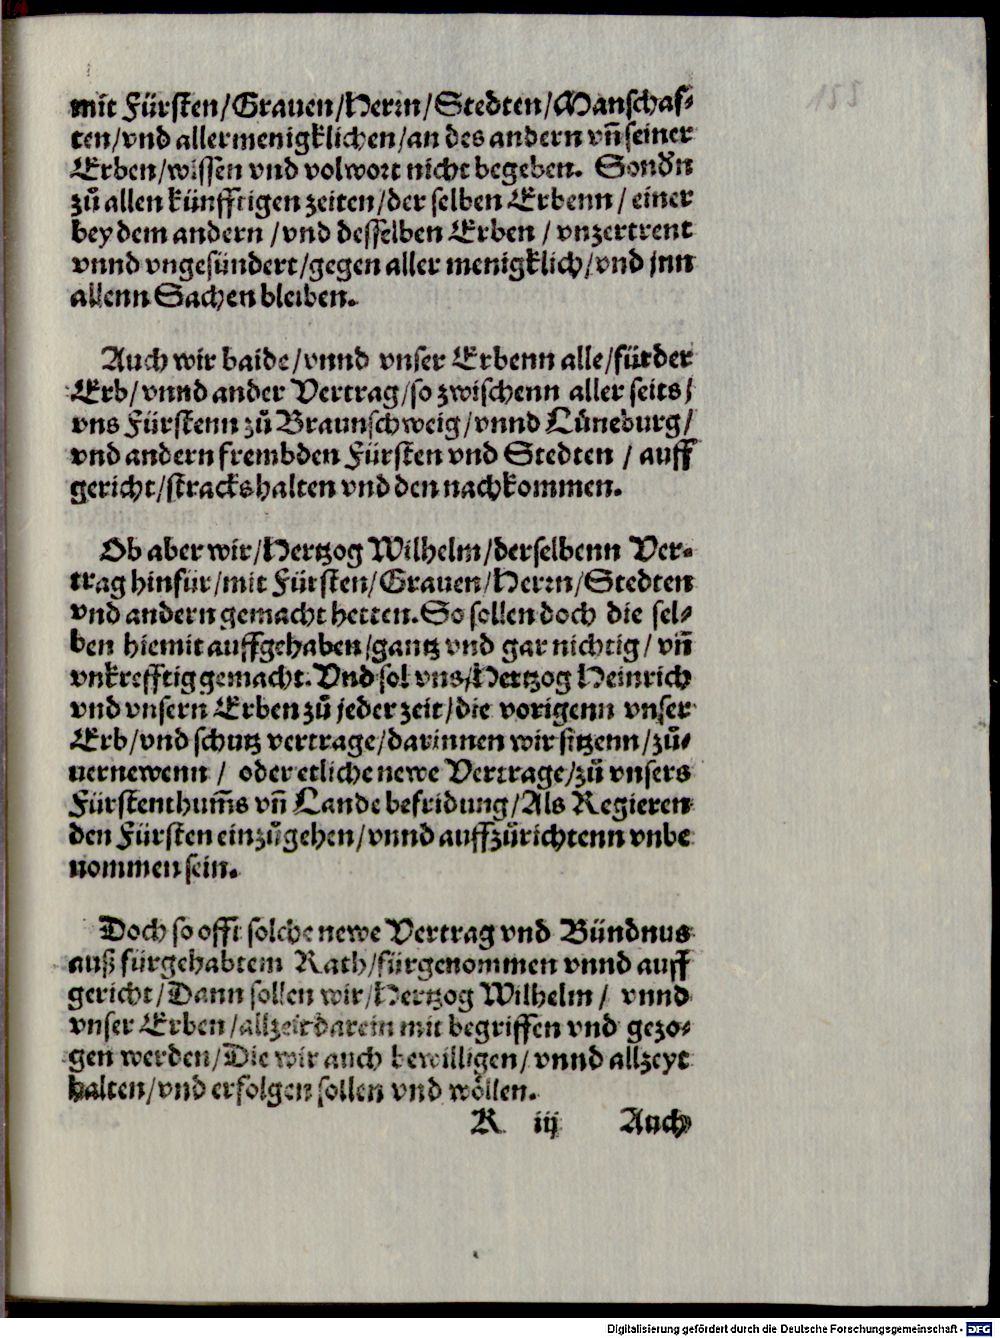 mit Fürsten/Grauen/Herrn/Stedten/Manschaf⸗
ten/vnd allermenigklichen/an des andern vñ seiner
Erben/wissen vnd volwort nicht begeben. Sondn̄
zů allen künfftigen zeiten/der selben Erbenn/ einer
bey dem andern /vnd desselben Erben / vnzertrent
vnnd vngesündert/gegen aller menigklich/vnd jnn
allenn Sachen bleiben.
Auch wir baide/vnnd vnser Erbenn alle/für der
Erb/vnnd ander Vertrag/so zwischenn aller seits/
vns Fürstenn zů Braunschweig/vnnd Lüneburg/
vnd andern frembden Fürsten vnd Stedten / auff
gericht/stracks halten vnd den nachkommen.
Ob aber wir/Hertzog Wilhelm/derselbenn Ver⸗
trag hinfür/mit Fürsten/Grauen/Herrn/Stedten
vnd andern gemacht hetten. So sollen doch die sel⸗
ben hiemit auffgehaben/gantz vnd gar nichtig/ vñ
vnkrefftig gemacht. Vnd sol vns/Hertzog Heinrich
vnd vnsern Erben zů jeder zeit/die vorigenn vnser
Erb/vnd schutz vertrage/darinnen wir sitzenn/zů⸗
uernewenn / oder etliche newe Vertrage/zů vnsers
Fürstenthum̄s vñ Lande befridung/Als Regieren
den Fürsten einzůgehen/vnnd auffzůrichtenn vnbe
nommen sein.
Doch so offt solche newe Vertrag vnd Bündnus
auß fürgehabtem Rath/fürgenommen vnnd auff
gericht/Dann sollen wir/Hertzog Wilhelm/ vnnd
vnser Erben/allzeit darein mit begriffen vnd gezo⸗
gen werden/Die wir auch bewilligen/vnnd allzeyt
halten/vnd erfolgen sollen vnd wöllen.
R iij Auch
Digitalisierung gefördert durch die Deutsche Forschungsgemeinschaft - DFG